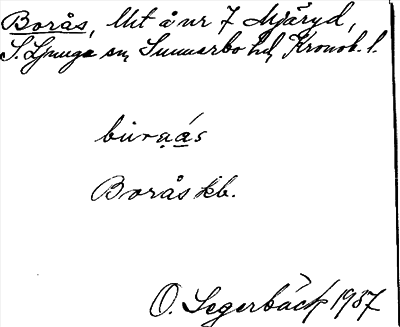 Borås, Utt å nr 7 Mjäryd,
S. Ljunga sn, Sunnerbo hd, Kronob. l.
bùra̱ás
Borås kb.
O. Segerbäck 1937